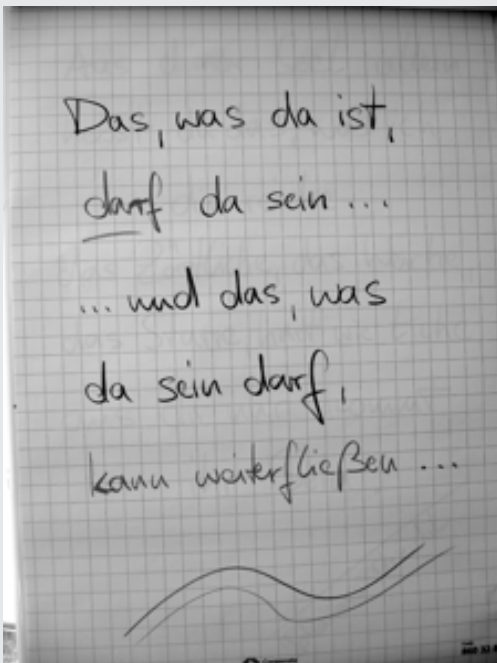 Das, was da ist,
darf da sein ...
... und das, was
da sein darf,
kann weiterfließen ...